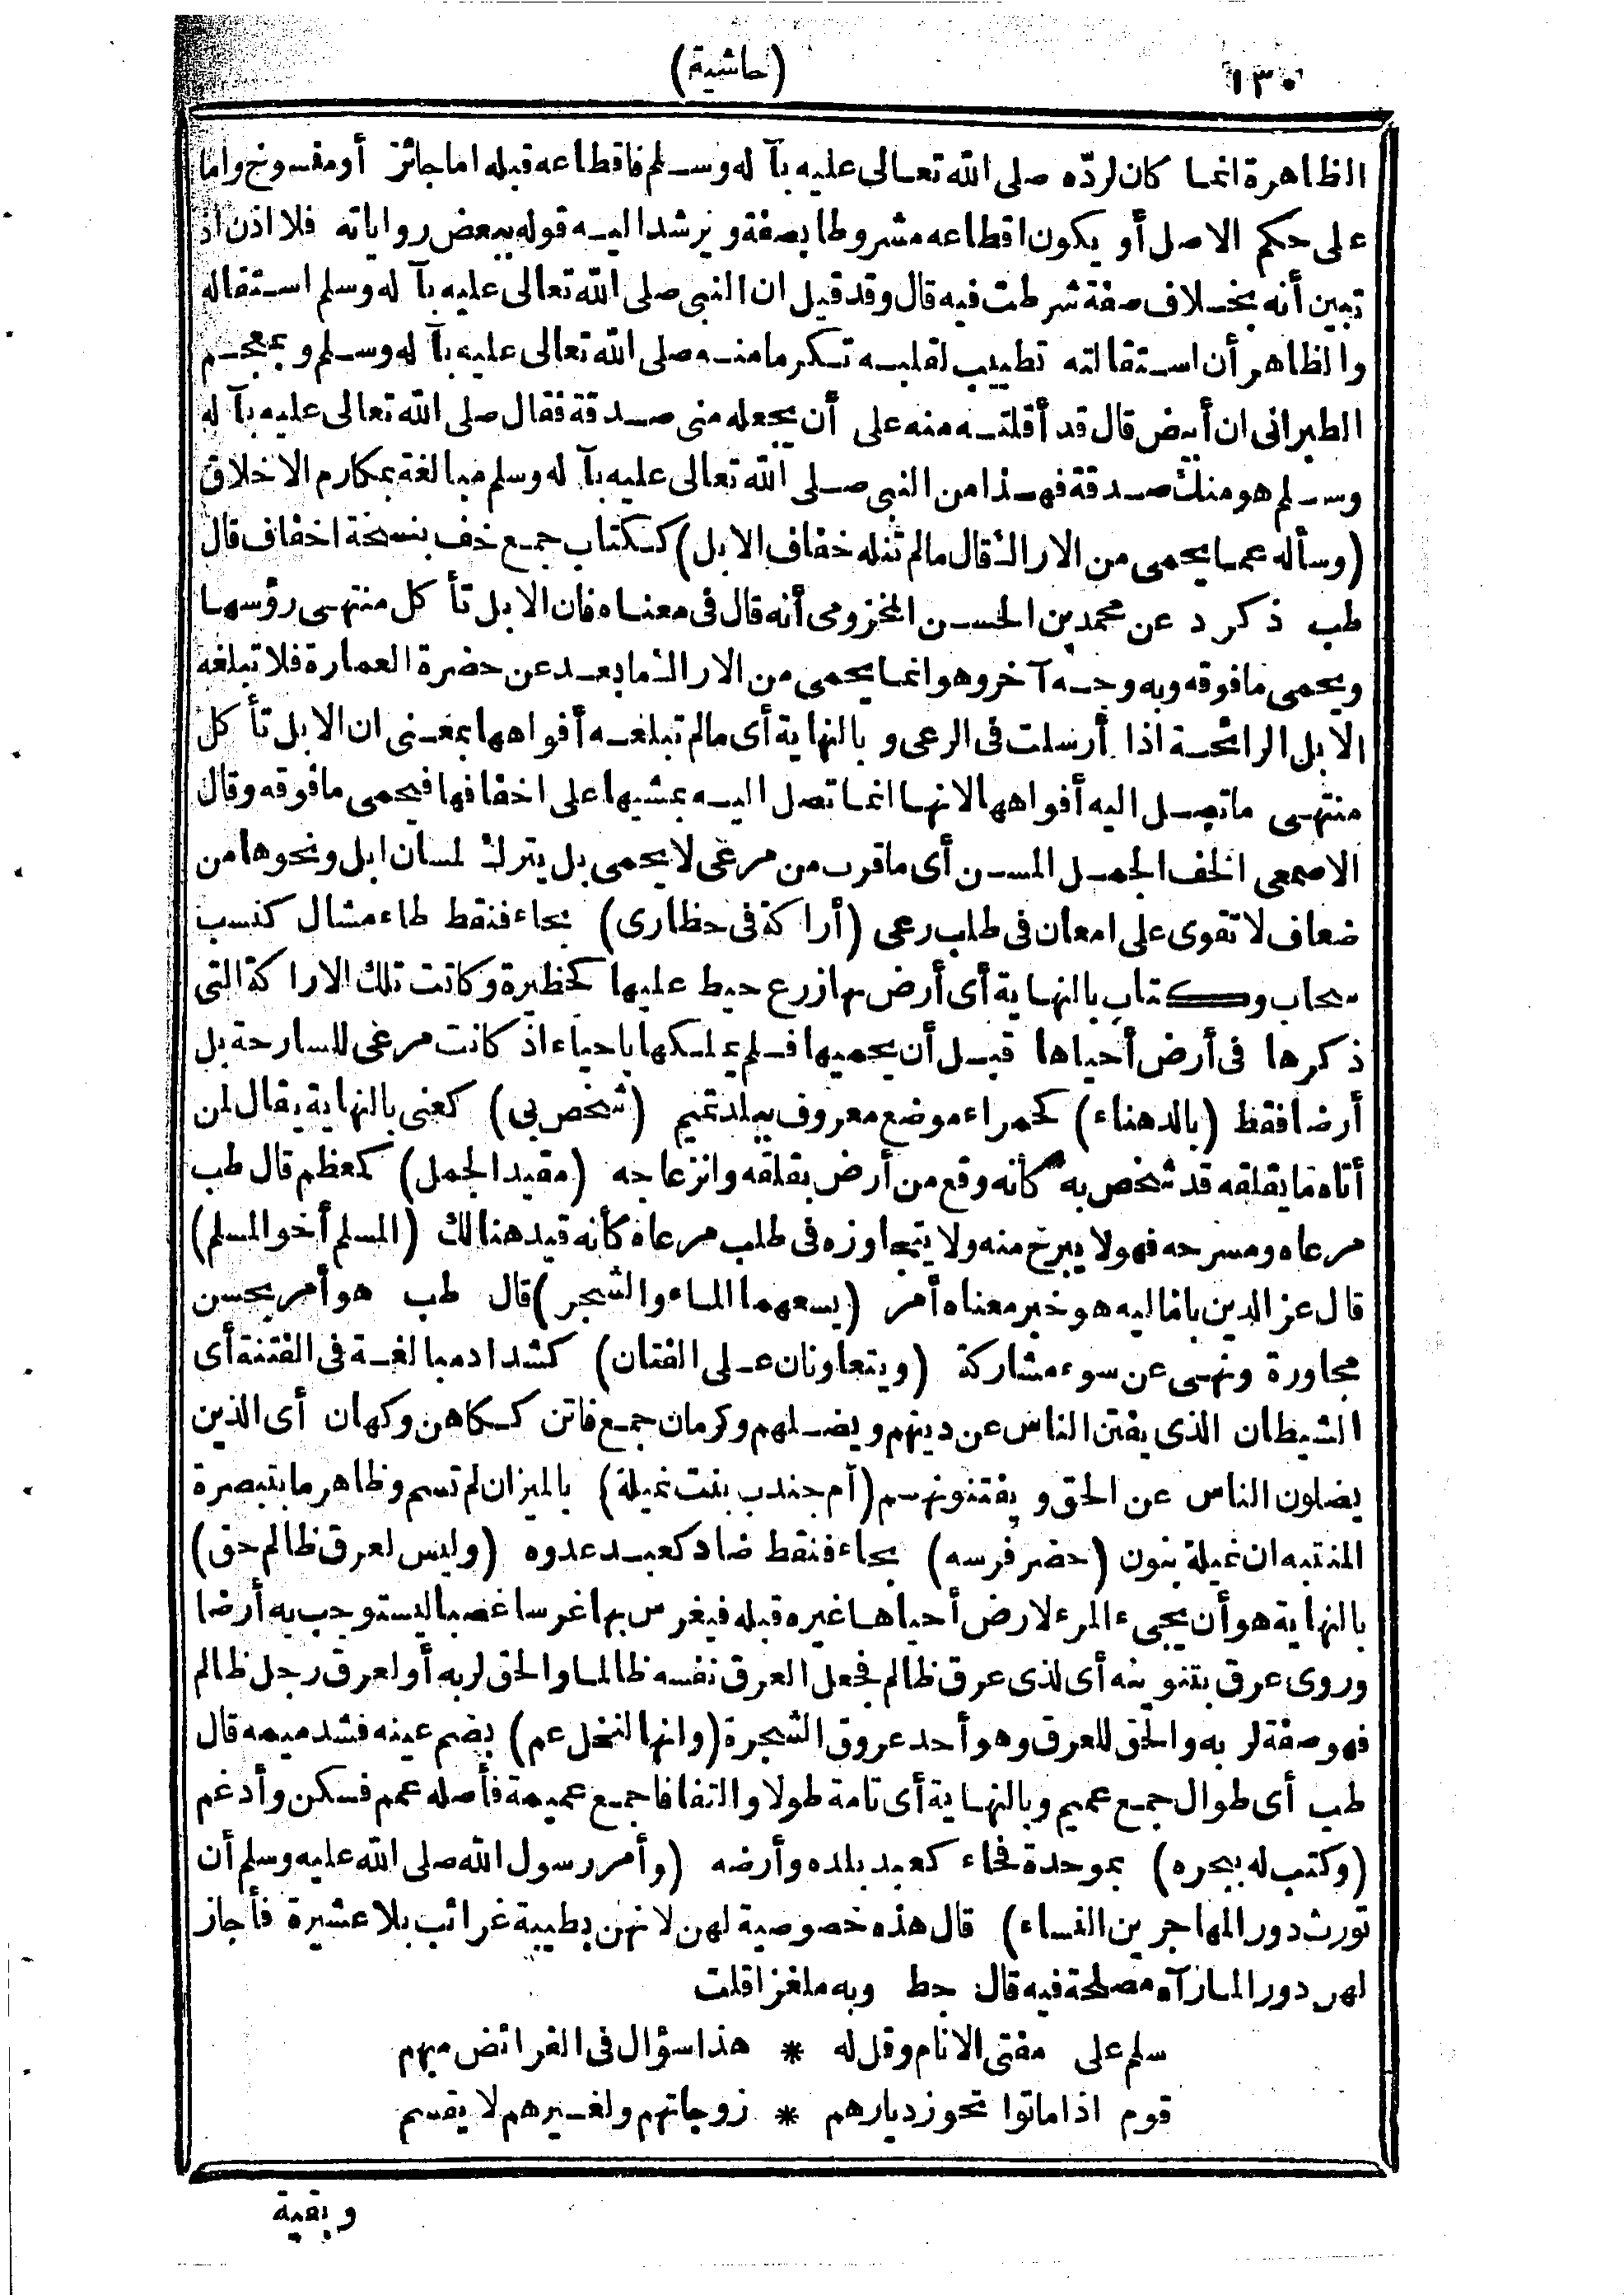 ١٣٠ (حاشية)
الظاهرة انما كان لردّه صلى الله تعالى عليه بآ له وسلم فاقطاعه قبله اما جائز أو مفسوخ واما
على حكم الاصل أو يكون اقطاعه مشروطا بصفة ويرشد اليه قوله ببعض رواياته فلا اذن اذ
تبين أنه بخلاف صفة شرطت فيه قال وقد قيل ان النبى صلى الله تعالى عليه بآ له وسلم استقاله
والظاهر أن استقالته تطييب لقلبه تكرما منه صلى الله تعالى عليه بآ له وسلم وبمعجم
الطبرانى ان أبيض قال قد أقلته منه على أن يجعله منى صدقة فقال صلى الله تعالى عليه بآ له
وسلم هو منك صدقة فهذا من النبى صلى الله تعالى عليه بآ له وسلم مبالغة بمكارم الاخلاق
(وسأله عما يحمى من الاراك قال مالم تنله خفاف الابل) ككتاب جمع خف بنسخة اخفاف قال
طب ذكر د عن محمد بن الحسن المخزومى أنه قال فى معناه فان الابل تأ كل منتهى رؤسها
ويحمى ما فوقه وبه وجه آخر وهو انما يحمى من الاراك ما بعد عن حضرة العمارة فلا تبلغه
الابل الرائحة اذا أرسلت فى الرعى و بالنهاية أى مالم تبلغه أفواهها بمعنى ان الابل تأ كل
منتهى ما تصل اليه أفواهها لانها انما تصل اليه بمشيها على اخفافها فيحمى ما فوقه وقال
الاصمعى الخف الجمل المسن أى ما قرب من مرعى لا يحمى بل يترك لمسان ابل ونحوها من
ضعاف لا تقوى على امعان فى طلب رعى (أراكة فى حظارى) بحاء فنقط طاء مشال كنسب
سحاب وكتاب بالنهاية أى أرض بها زرع حيط عليها كحظيرة وكانت تلك الاراكة التى
ذكرها فى أرض أحياها قبل أن يحميها فلم يملكها باحياء اذ كانت مرعى للسارحة بل
أرضا فقط (بالدهناء) كحمراء موضع معروف ببلد تميم (شخص بى) كعنى بالنهاية يقال لمن
أتاه ما يقلقه قد شخص به كأنه وقع من أرض بقلقه وانزعاجه (مقيد الجمل) كمعظم قال طب
مرعاه ومسرحه فهو لا يبرح منه ولا يتجاوزه فى طلب مرعاه كأنه قيد هنالك (المسلم أخو المسلم)
قال عز الدين باماليه هو خبر معناه أمر (يسعهما الماء والشجر) قال طب هو أمر بحسن
مجاورة ونهى عن سوء مشاركة (ويتعاونان على الفتان) كشداد مبالغة فى الفتنة أى
الشيطان الذى يفتن الناس عن دينهم ويضلهم وكرمان جمع فاتن ككاهن وكهان أى الذين
يضلون الناس عن الحق و يفتنونهم (أم جندب بنت نميلة) بالميزان لم تسم وظاهر ما بتبصرة
المنتبه ان نميلة بنون (حضر فرسه) بحاء فنقط ضاد كعبد عدوه (وليس لعرق ظالم حق)
بالنهاية هو أن يجىء المرء لارض أحياها غيره قبله فيغرس بها غرسا غصبا ليستوجب به أرضا
وروى عرق بتنوينه أى لذى عرق ظالم فجعل العرق نفسه ظالما والحق لربه أو لعرق رجل ظالم
فهو صفة لر به والحق للعرق وهو أحد عروق الشجرة (وانها لنخل عم) بضم عينه فشد ميمه قال
طب أى طوال جمع عميم وبالنهاية أى تامة طولا والتفافا جمع عميمة فأصله عمم فسكن وأدغم
(وكتب له ببحره) بموحدة فحاء كعبد بلده وأرضه (وأمر رسول الله صلى الله عليه وسلم أن
تورث دور المهاجرين النساء) قال هذه خصوصية لهن لانهن بطيبة غرائب بلا عشيرة فأجاز
لهن دورا لما رآه مصلحة فيه قال جط وبه ملغزا قلت
سلم على مفتى الانام وقل له * هذا سؤال فى الفرائض مبهم
قوم اذا ماتوا تحوز ديارهم * زوجاتهم ولغيرهم لا يقسم
وبقية